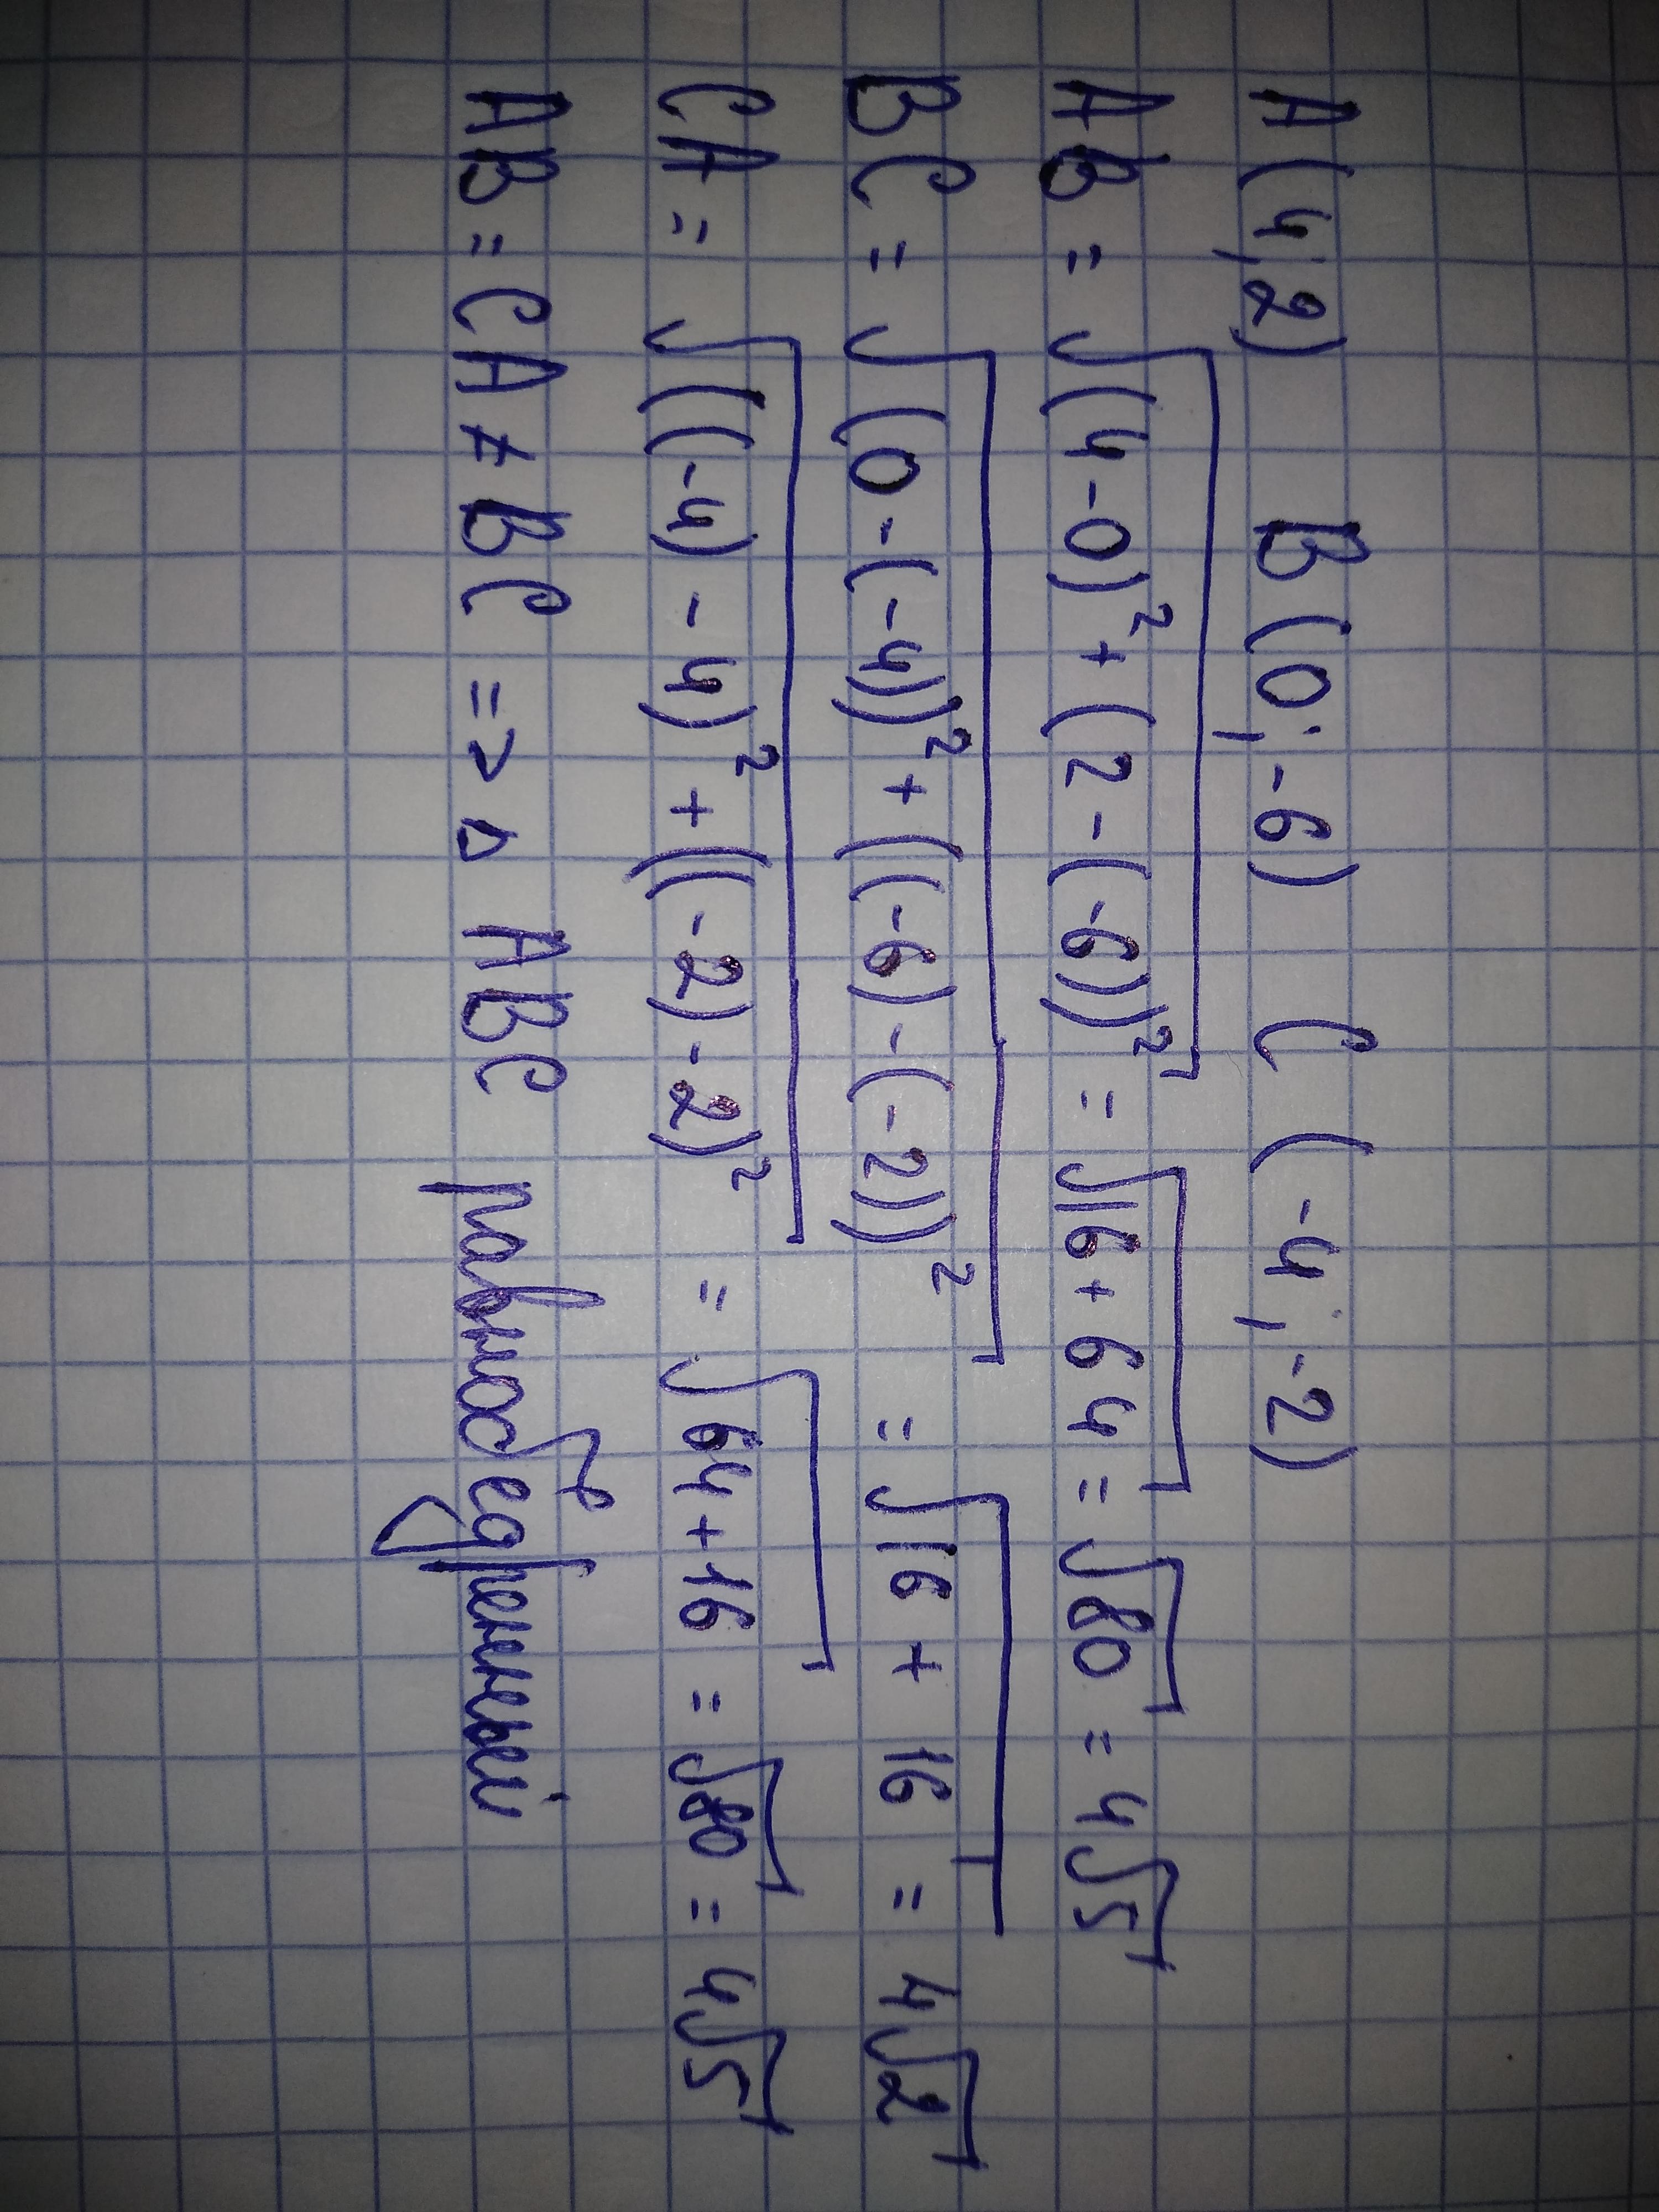 A(4;2) B(0;-6) C(-4;-2)
AB = √(4-0)²+(2-(-6))² = √16+64 = √80 = 4√5
BC = √(0-(-4))²+((-6)-(-2))² = √16+16 = 4√2
CA = √((-4)-4)²+((-2)-2)² = √64+16 = √80 = 4√5
AB = CA ≠ BC => △ ABC равнобедренный